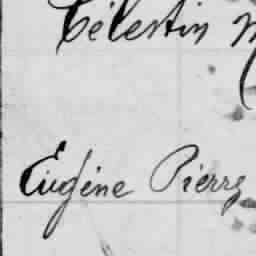 Célestin
Eugène Pierre